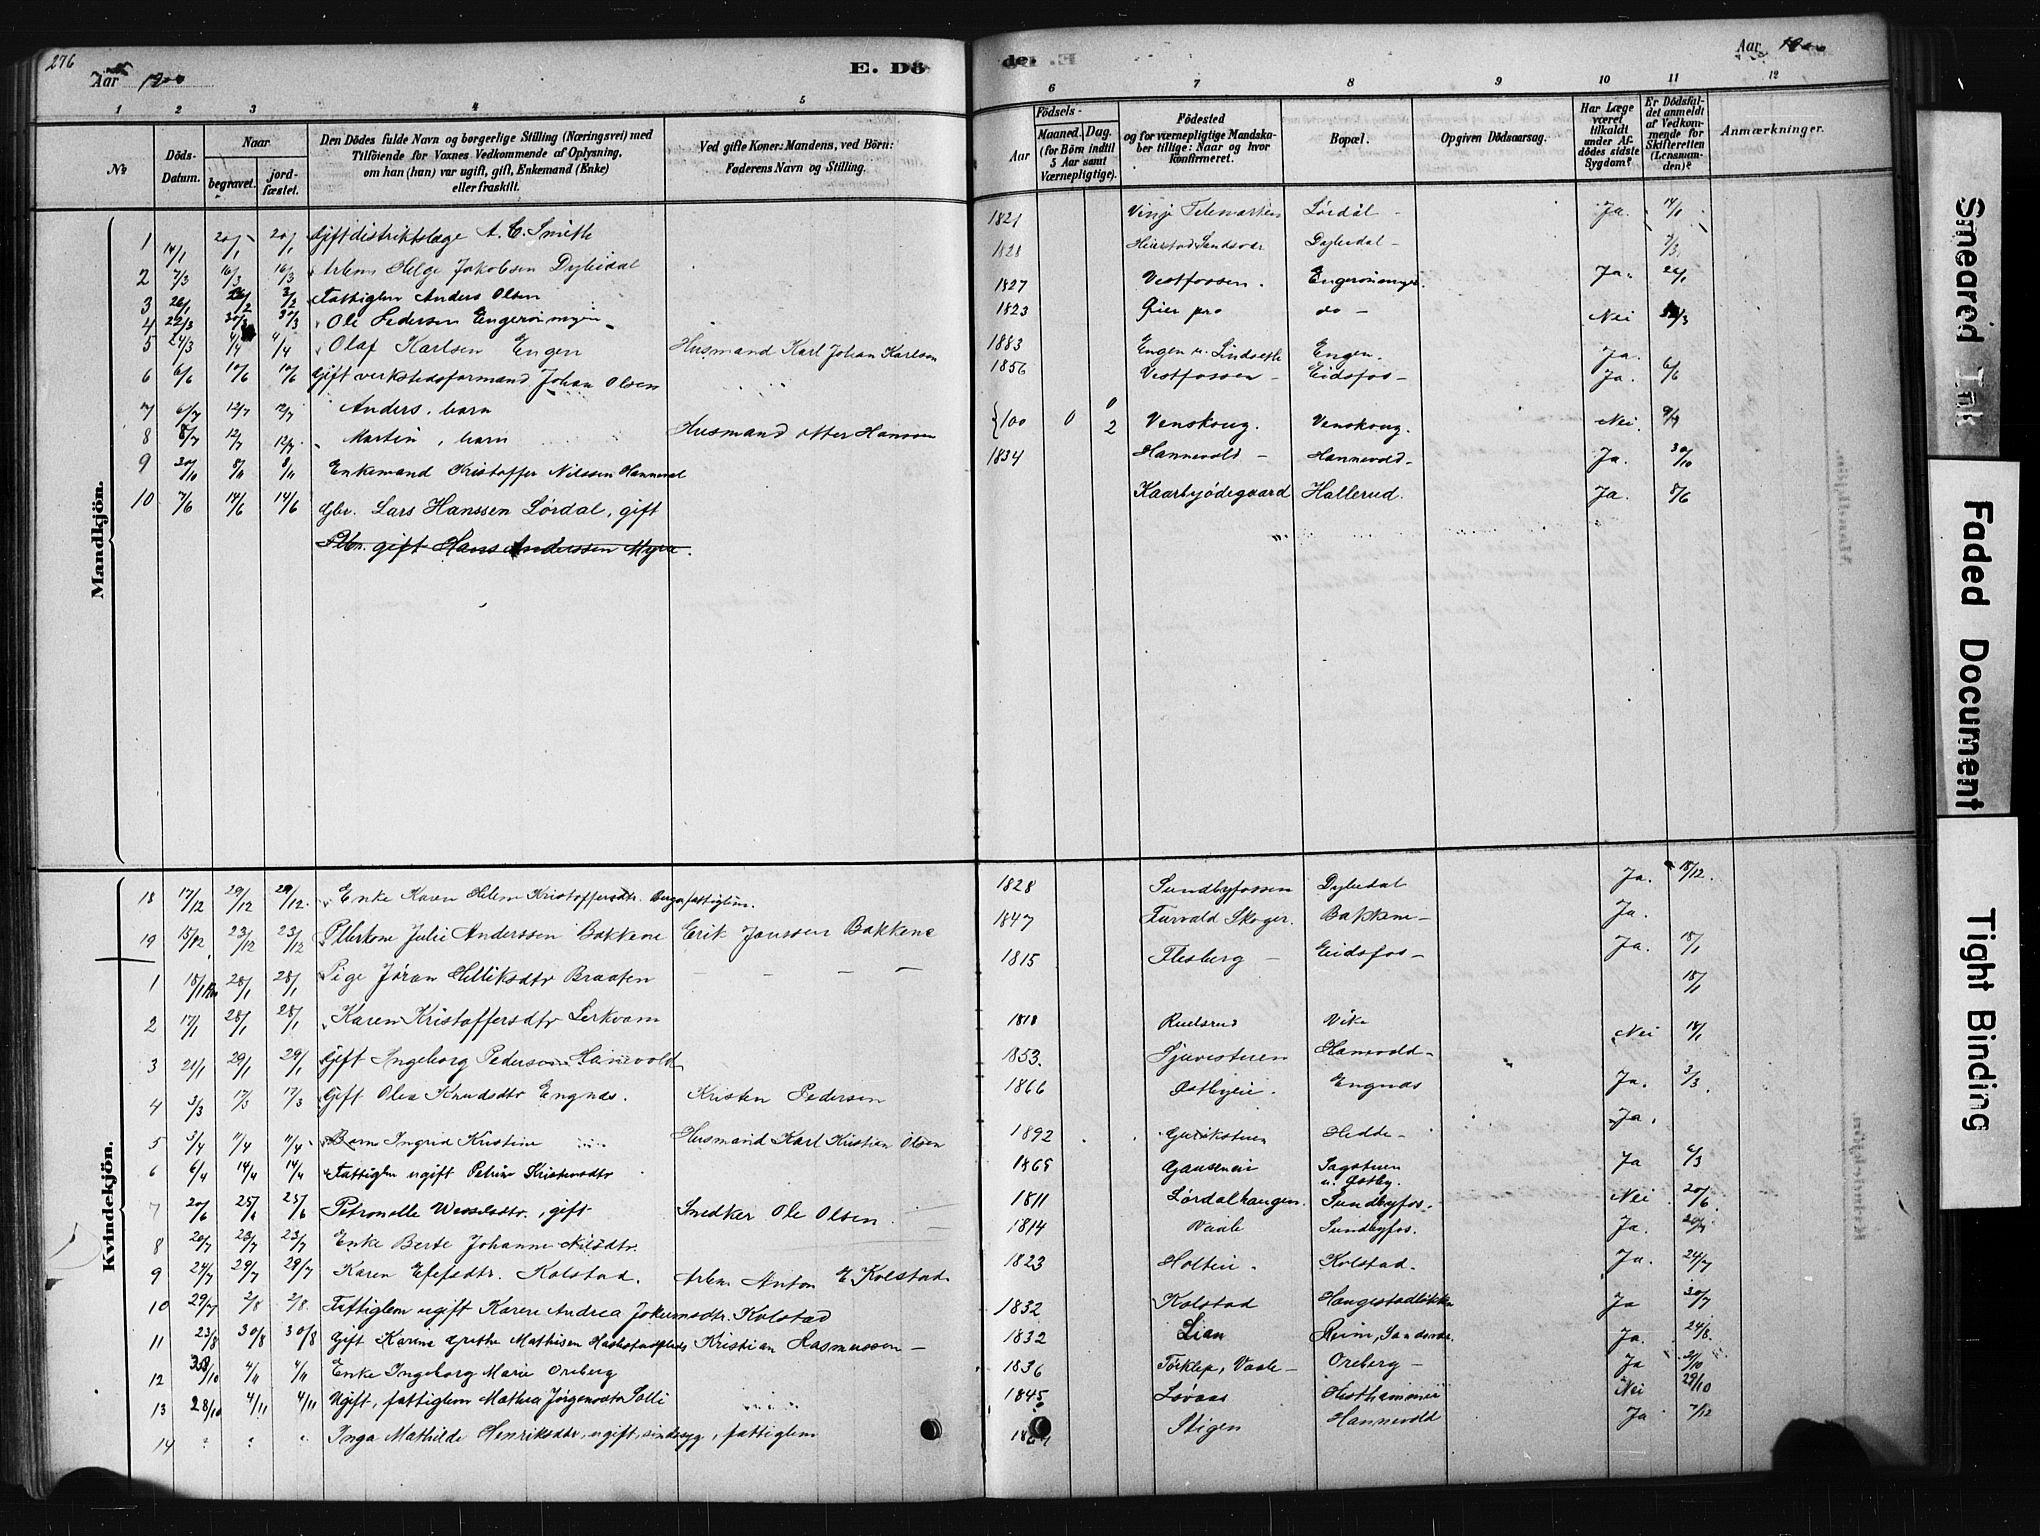 276
Aar 1900
E. Dö
de. E.
Aar 1900
1 2 3 4 5 6 7 8 9 10 11 12
No
Döds-Datum.
Naar
begravet.
jord-fæstet.
Den Dödes fulde Navn og borgerlige Stilling (Næringsvei) med
Tilföiende for Voxnes Vedkommende af Oplysning,
om han (hun) var ugift, gift, Enkemand (Enke)
eller fraskilt.
Ved gifte Koner: Mandens, ved Börn:
Faderens Navn og Stilling.
Födsels-
Aar
Maaned. Dag.
(for Börn indtil
5 Aar samt
Værnepligtige).
Födested
og for værnepligtige Mandska-
ber tillige: Naar og hvor
konfirmeret.
Bopæl.
Opgiven Dödsaarsag.
Har Læge
været
tilkaldt
under Af-
dödes sidste
Sygdom?
Er Dödsfal-
det anmeldt
af Vedkom-
mende for
Skifteretten
(Lensman-
den)?
Anmærkninger.
Mandkjön.
1 14/1 20/1 20/1 Gift distriktslæge A. C. Smith 1821 Vinje Telemarken Lørdal Ja. 14/1
2 7/3 16/3 16/3 Arbm Helge Jakobsen Dybidal 1828 Dybedal 7/3
3 26/1 2/2 Fattiglem Anders Olsen 1827 Vestfossen. Ja. 26/1
4 22/3 30/3 30/3 Ole Pedersen 1823 do Nei
5 24/3 4/4 4/4 Olaf Karlsen Engen Husmand Karl Johan Karlsen 1883 Engen u. Lindseth Engen. Ja.
6 6/6 10/6 10/6 Gift verkstedsformand Johan Olsen 1856 Vestfossen Eidsfos Ja. 6/6
7 6/7 12/7 12/7 Anders, barn 100 0 0 Venskoug. Venskoug. Nei. 9/7
8 8/7 12/7 12/7 Martin, barn Husmand Otter Hansen 2
9 30/10 8/11 8/11 Enkemand Kristoffer Nilssen Hannevol 1834 Hannevold Hannevold Ja. 30/10
10 7/6 14/6 14/6 Gbr. Lars Hanssen Lørdal, gift Kaarbyødegaard Hallerud. Ja. 8/6
Pbr. gift Hans Anderssen Myra.
Kvindekjön.
18 17/12 29/12 29/12 Enke Karen Helene Kristoffersdtr. Berga fattiglem. 1828 Sundbyfossen Dybedal Ja. 18/12.
19 15/12 23/12 23/12 Julie Anderssen Bakkene Erik Janssen Bakkene 1847 Furvald Skoger. Bakkene Ja.
1 18/1 28/1 28/1 Pige Jøran Helliksdtr Braaten 1815 Flesberg Eidsfos Ja. 18/1
2 17/1 28/1 28/1 Karen Kristoffersdtr Lerkvam 1818 Ruelsrud Vike 18/1
3 21/1 29/1 29/1 Gift Ingeborg Pedersen Hanevold 1853. Hanevold Nei 18/1
4 3/3 17/3 17/3 Gift Olea Knudsdtr Engnæs. Kristen Pedersen 1866 Østbyeie. Engnæs Ja. 3/3
5 3/4 11/4 11/4 Barn Ingrid Kristine Husmand Karl Kristian Olsen 1892 Hedde Ja.
6 6/4 14/4 14/4 Fattiglem ugift Petrine Kristensdtr 1865 Sagstuen u. Østby. Ja 6/3
7 20/6 25/6 25/6 Petronelle Wesselsdtr., gift Snedker Ole Olsen. 1811 Lørdalhaugen. Sundbyfos. Nei 20/6.
8 20/7 23/7 23/7 Enke Berte Johanne Nilsdtr. 1814 Vaale Sundbyfos. Ja. 20/7
9 24/7 29/7 29/7 Karen Elefsdtr. Kolstad. Arbm Anton E. Kolstad 1823 Holtin. Kolstad. Ja. 24/7
10 29/7 2/8 2/8. Fattiglem ugift Karen Andrea Jokumsdtr. Kolstad 1832 Kolstad Haugestadløkken Ja 30/7
11 23/8 30/8 30/8 Gift Karine Grethe Mathisen Kristian Rasmussen 1832 Lian Reim, Sandsvær. Ja. 24/8.
12 4/11 4/11 Enke Ingeborg Marie Oreberg 1836 Torklep, Vaale Oreberg Ja
13 28/10 4/11 4/11 Ugift, fattiglem Mathea Jørgensdtr Solli 1845 Løvaas Nei 29/10
14 Inga Mathilde Henriksdtr, ugift, sindssyg, fattiglem Stigen Hannevold Ja 7/12
Smeared Ink
Faded Document
Tight Binding